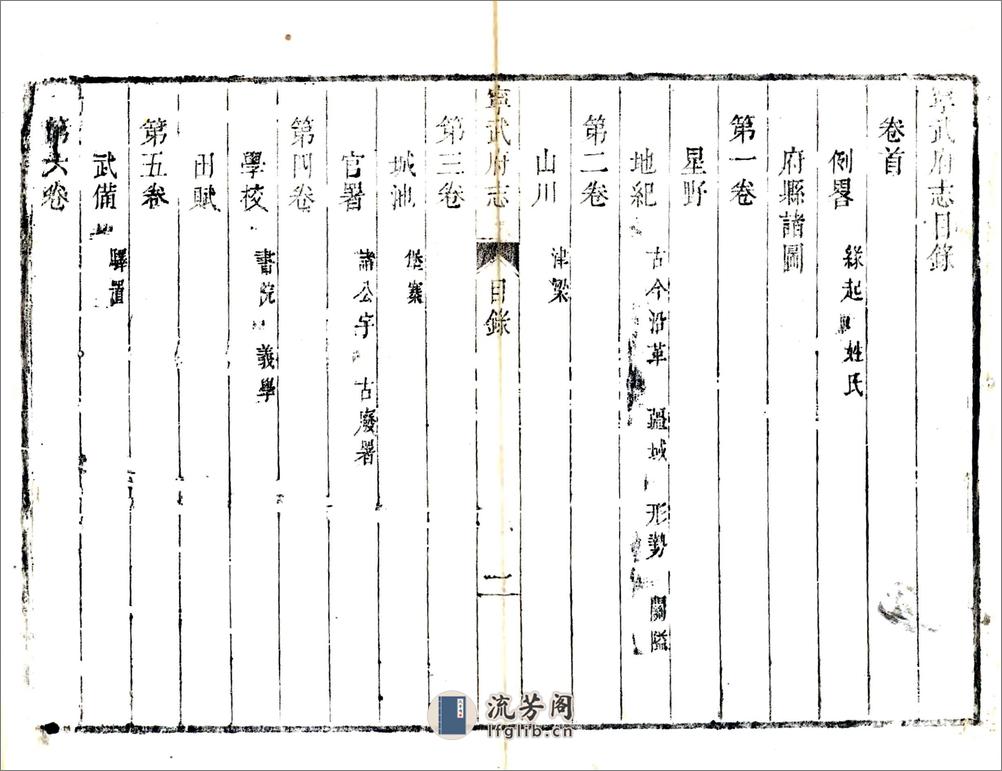 寧武府志目錄
卷首
例畧 緣起 姓氏
府縣諸圖
第一卷
星野
地紀 古今沿革 疆域 形勢 關隘
第二卷
山川 津梁
寧武府志 目錄 一
第三卷
城池 堡寨
官署 諸公宇 古廢署
第四卷
學校 書院 義學
田賦
第五卷
武備 驛置
第六卷
流芳阁
lfglib.cn